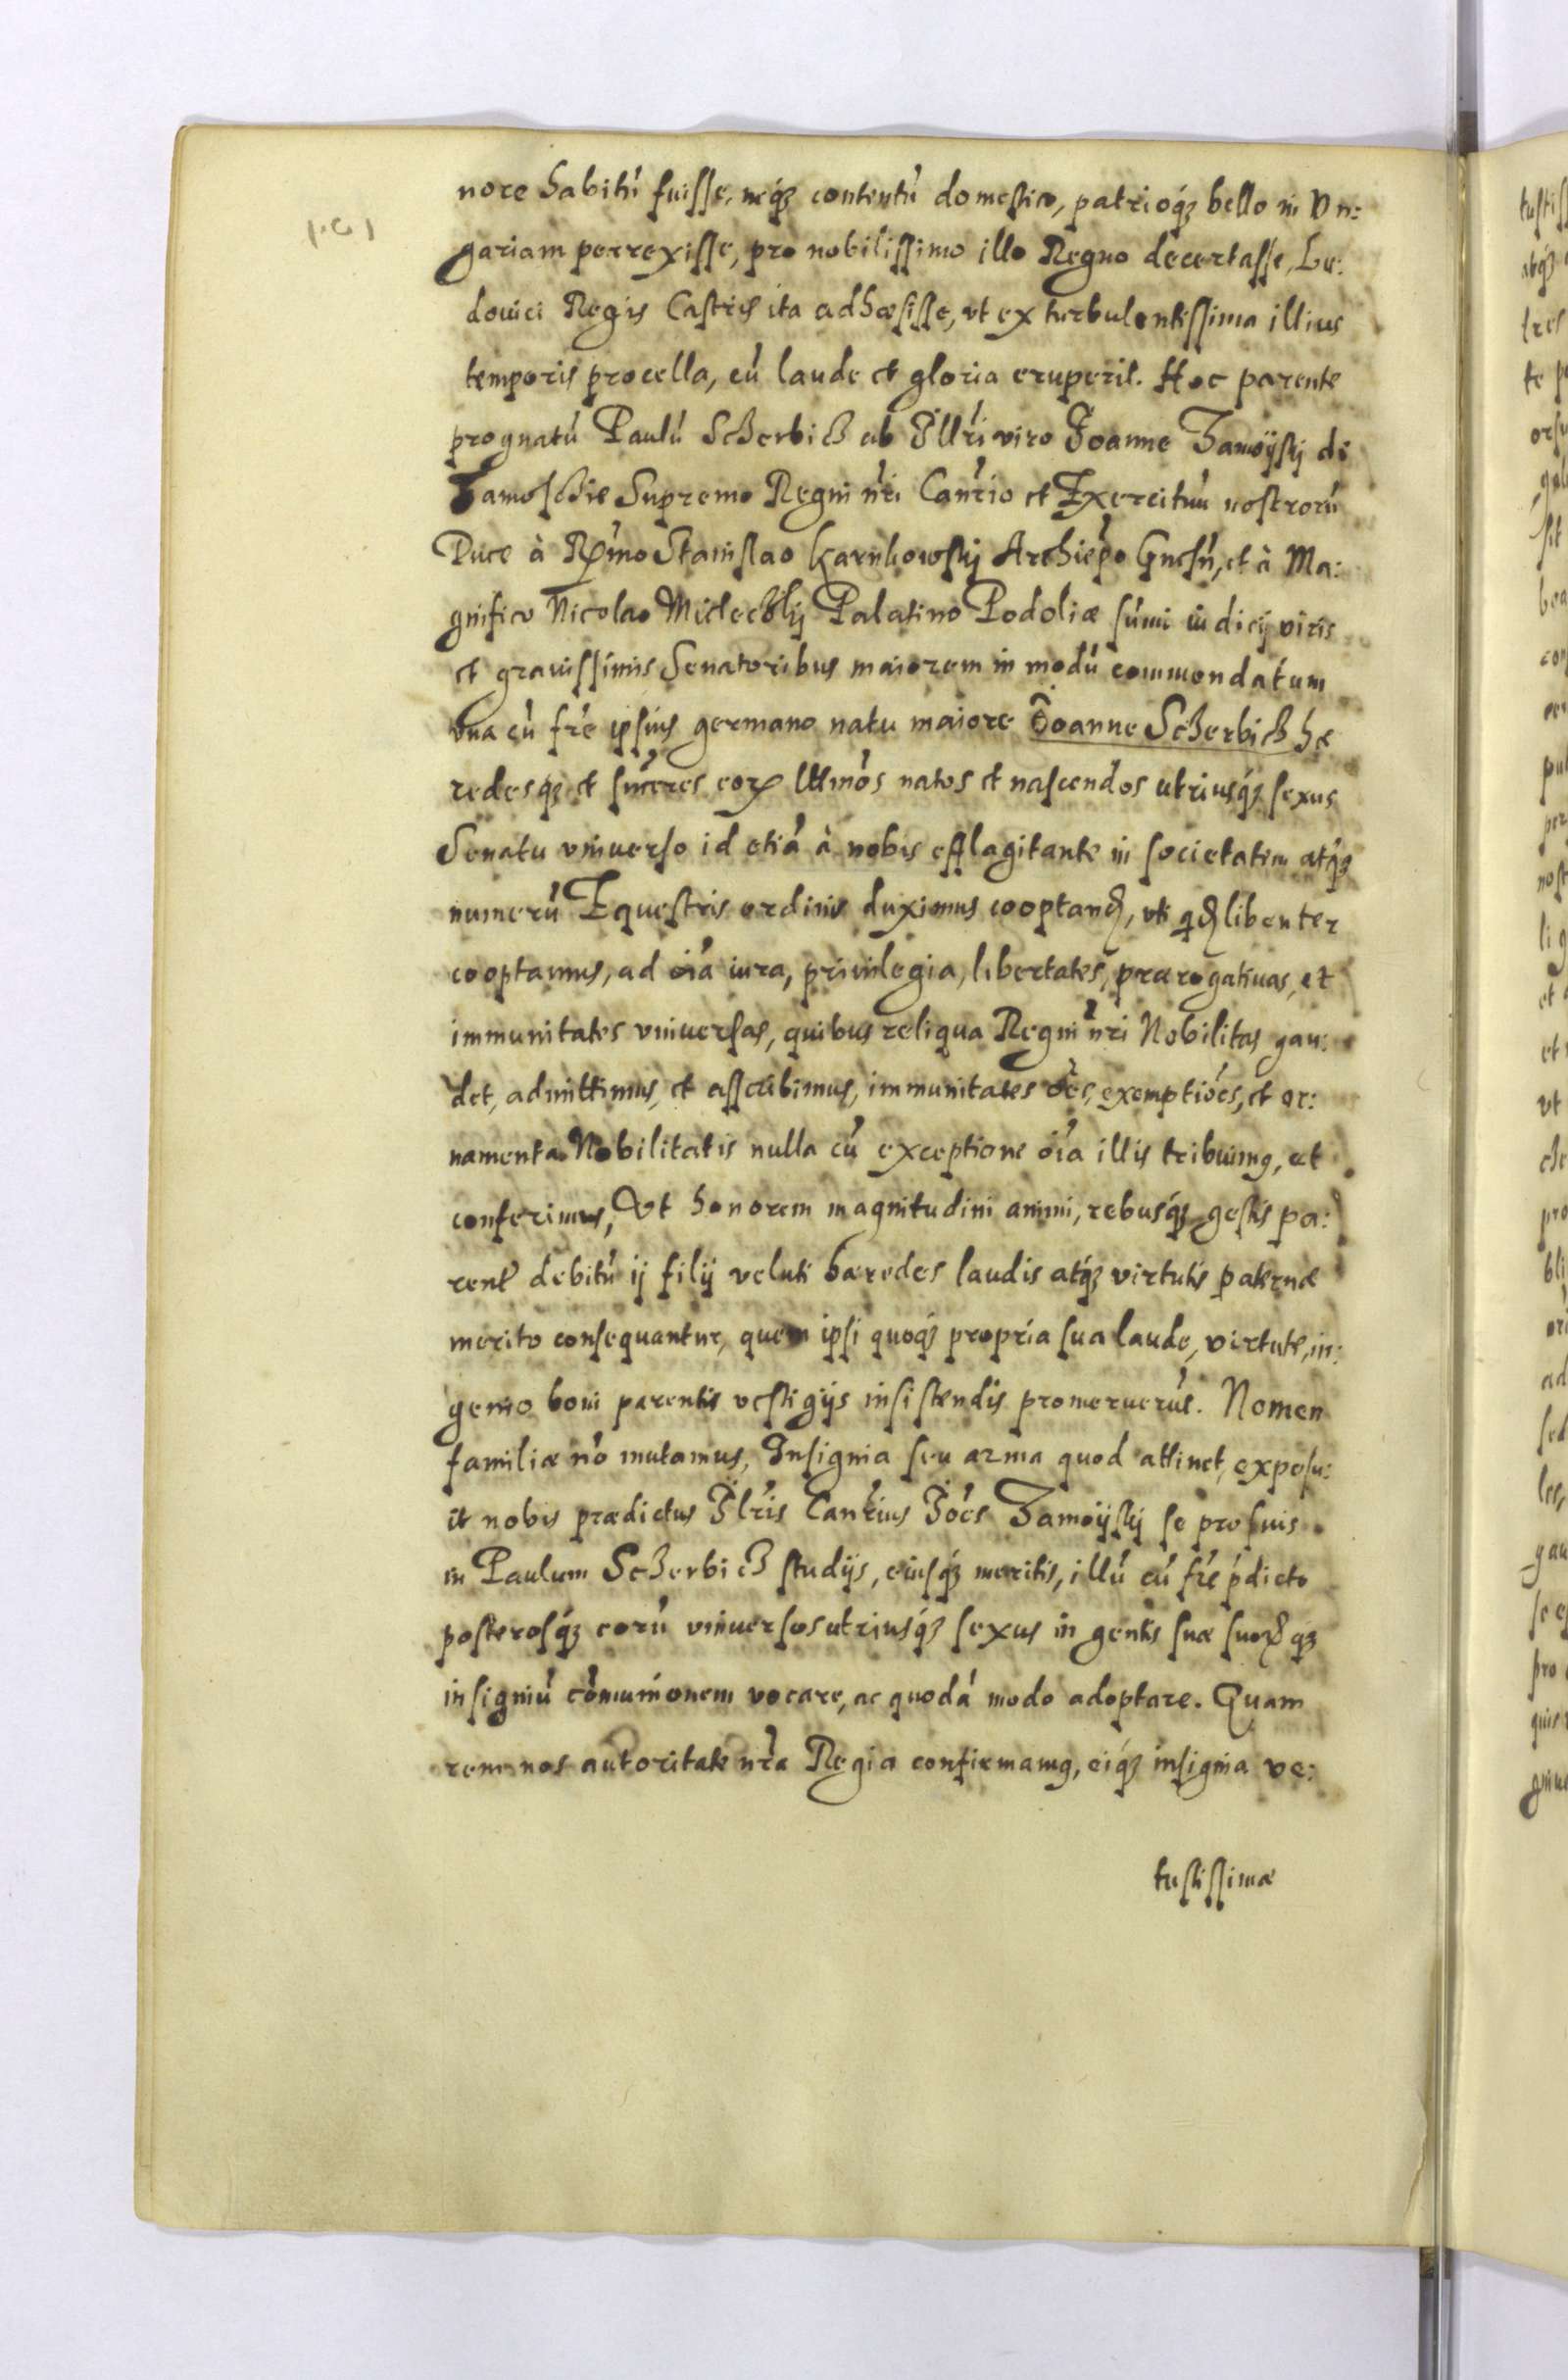 nore habitū fuisse, neq́3 contentū domestico, patrioq́3 bello in Vn:
gariam perrexisse, pro nobilissimo illo Regno decertasse, Lu:
douici Regis Castris ita adhæsisse, vt ex turbulentissima illius
temporis procella, cū laude et gloria eruperit. Hoc parente
prognatū Paulū Scherbicz ab Illri viro Joanne Zamoÿskj de
Zamoscie Supremo Regni nri Canrio et Exercituū nostrorū
Duce à Rmo Stanislao Karnkowskij Archiepo Gnesn, et à Ma:
gnifico Nicolao Mieleczkij Palatino Podoliæ sūmi iudicij viris
et grauissimis Senatoribus maiorem in modū commendatum
vna cū fre ipsius germano natu maiore Joanne Scherbicz hæ
redesq3 et succres eorꝝ lltimos natos et nascendos utriusq́3 sexus
Senatu vniuerso id etiā à nobis efflagitante in societatem atq́3
numerū Equestris ordinis duximus cooptand, vti qd libenter
cooptamus, ad oīa iura, priuilegia, libertates, prærogatiuas, et
immunitates vniuersas, quibus reliqua Regni nri Nobilitas gau:
det, admittimus, et asscribimus, immunitates oēs, exemptiōes, et or:
namenta Nobilitatis nulla cū exceptione oīa illis tribuimꝰ, et
conferimus, Vt honorem magnitudini animi, rebusq́3 gestis pa:
rentꝭ debitū ij filij veluti hæredes laudis atq́3 virtutis paternæ
merito consequantur, quem ipsi quoq́3 propria sua laude, virtute, in:
genio boni parentis vestigijs insistendis promeruerūt. Nomen
familiæ nō mutamus, Insignia seu arma quod attinet, exposu:
it nobis prædictus Illris Canrius Joēs Zamoijskj se pro suis
in Paulum Scherbicz studijs, eiusq́3 meritis, illū cū fre p̄dicto
posterosq́3 eorū vniuersos utriusq́3 sexus in gentis suæ suorꝝq3
insigniū cōmunionem vocare, ac quodā modo adoptare. Quam
rem nos autoritate nra Regia confirmamꝰ, eiq́3 insignia ve:
tustissimæ